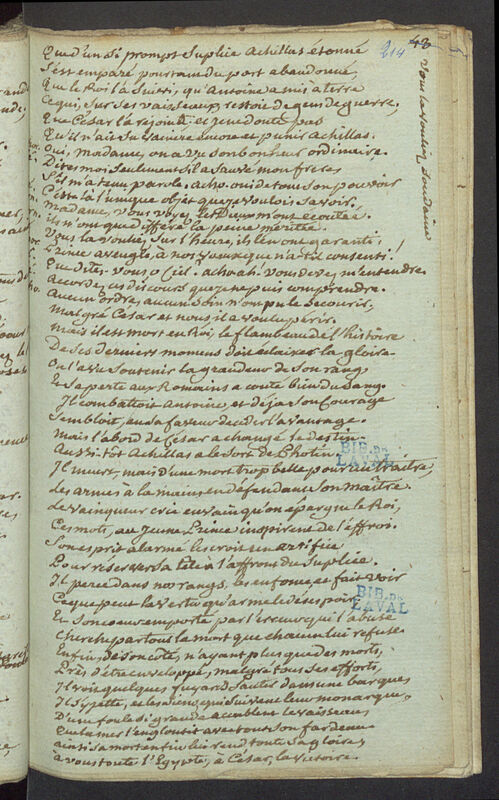 43
214
Que d'un si prompt suplice Achillas étonné
s'est emparé pourtant du port abandonné,
que le Roi l'a suivi, qu'Antoine a mis a terre
ce qui, sur ses vaisseaux restoit de gens de guerre,
que César l'a rejoint et je ne doute pas
qu'il n'ait su vaincre encore et punir Achillas.
oui, madame, on a vu son bonheur ordinaire.
Dites moi seulement s'il a sauvé mon frere
s'il m'a tenu parole. acho. oui de tout son pouvoir
C'est là l'unique objet que je voulois savoir.
madame, vous voyez, les Dieux m'ont écoutée.
ils n'ont que différé la peine méritée.
Vous la vouliez sur l'heure, ils l'en ont garanti
vous la vouliez soudaine
que dites-vous, o Ciel.
Accordez ces discours que je ne puis comprendre.
Aucun ordre, aucun soin n'ont pu le secourir,
malgré César et nous il a voulu périr.
mais il est mort en Roi, le flambeau de l'histoire
De ses derniers momens doit éclairer la gloire
On l'a vu soutenir la grandeur de son rang
Et sa perte aux Romains a couté bien du sang.
Il combattoit Antoine, et déja son courage
sembloit, en sa faveur decider l'avantage.
mais l'abord de César a changé le destin.
Aussi-tôt Achillas a le sort de Photin.
Il meurt, mais d'une mort trop belle pour un traître,
les armes à la main en défendant son maître.
le vainqueur crie en vain qu'on épargne le Roi,
Ces mots, au jeune Prince inspirent de l'effroi.
son esprit alarmé les croit un artifice
Pour reserver sa tête à l'affront du suplice.
Il perce dans nos rangs, les enfonce, et fait voir
Ce que peut la vertu qu'arme le désespoir
Et son coeur emporté par l'erreur qui l'abuse
cherche partout la mort que chacun lui refuse.
Enfin de son côté, n'ayant plus que des morts,
Près d'être enveloppé, malgré tous ses efforts,
Il voit quelques fuyards sauter dans une barque
Il s'y jette, et les siens, qui suivent leur monarque,
D'une foule si grande accablent le vaisseau
que la mer l'engloutit avec tout son fardeau
ainsi sa mort enfin lui rend toute sa gloire,
a vous toute l'Egypte, à César, la victoire.
BIB. DE
LAVAL
BIB. DE
LAVAL